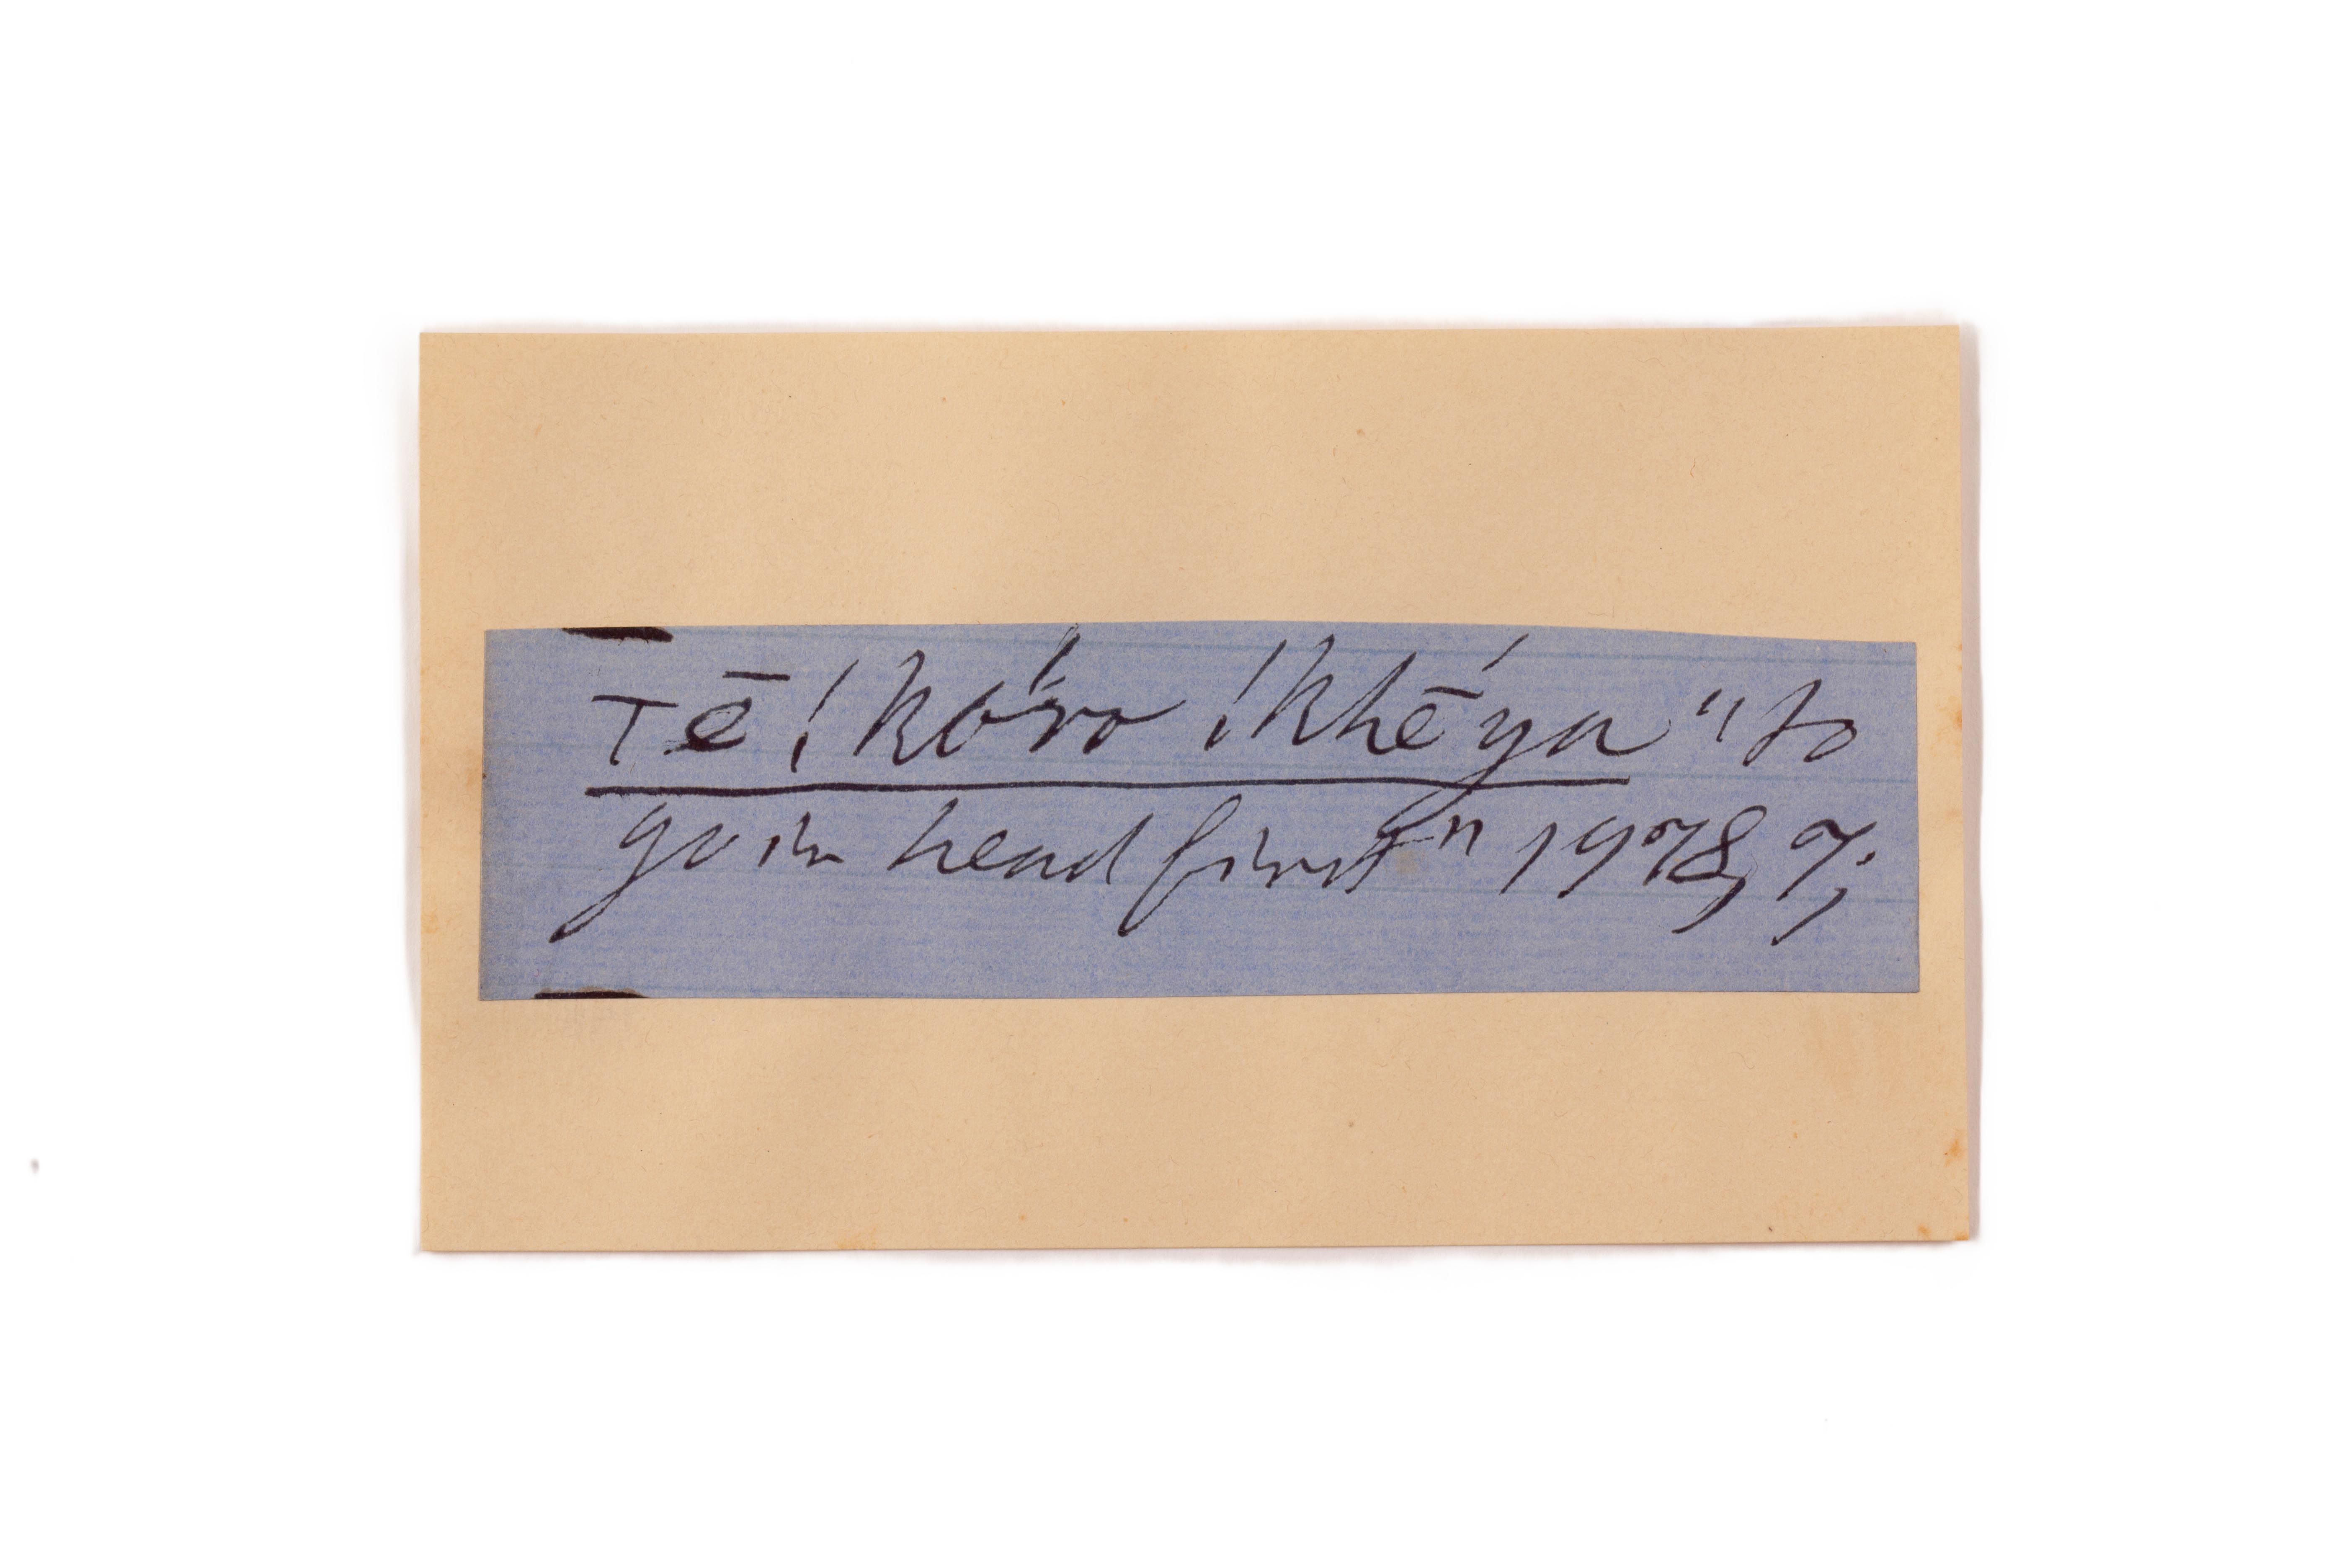 Tē !kóro !khḗya "to
go in head first" 1978, 7;